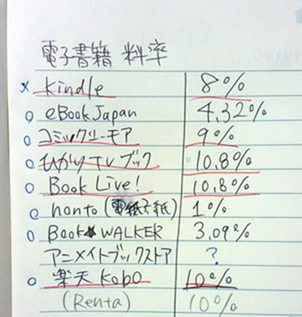 電子書籍 料率
× Kindle 8%
○ eBookJapan 4.32%
○ コミックシーモア 9%
○ ひかりTVブック 10.8%
○ Book Live! 10.8%
○ honto (電子) 1%
○ Book☆WALKER 3.09%
アニメイトブックストア ?
○ 楽天 Kobo 10%
(Renta) 10%